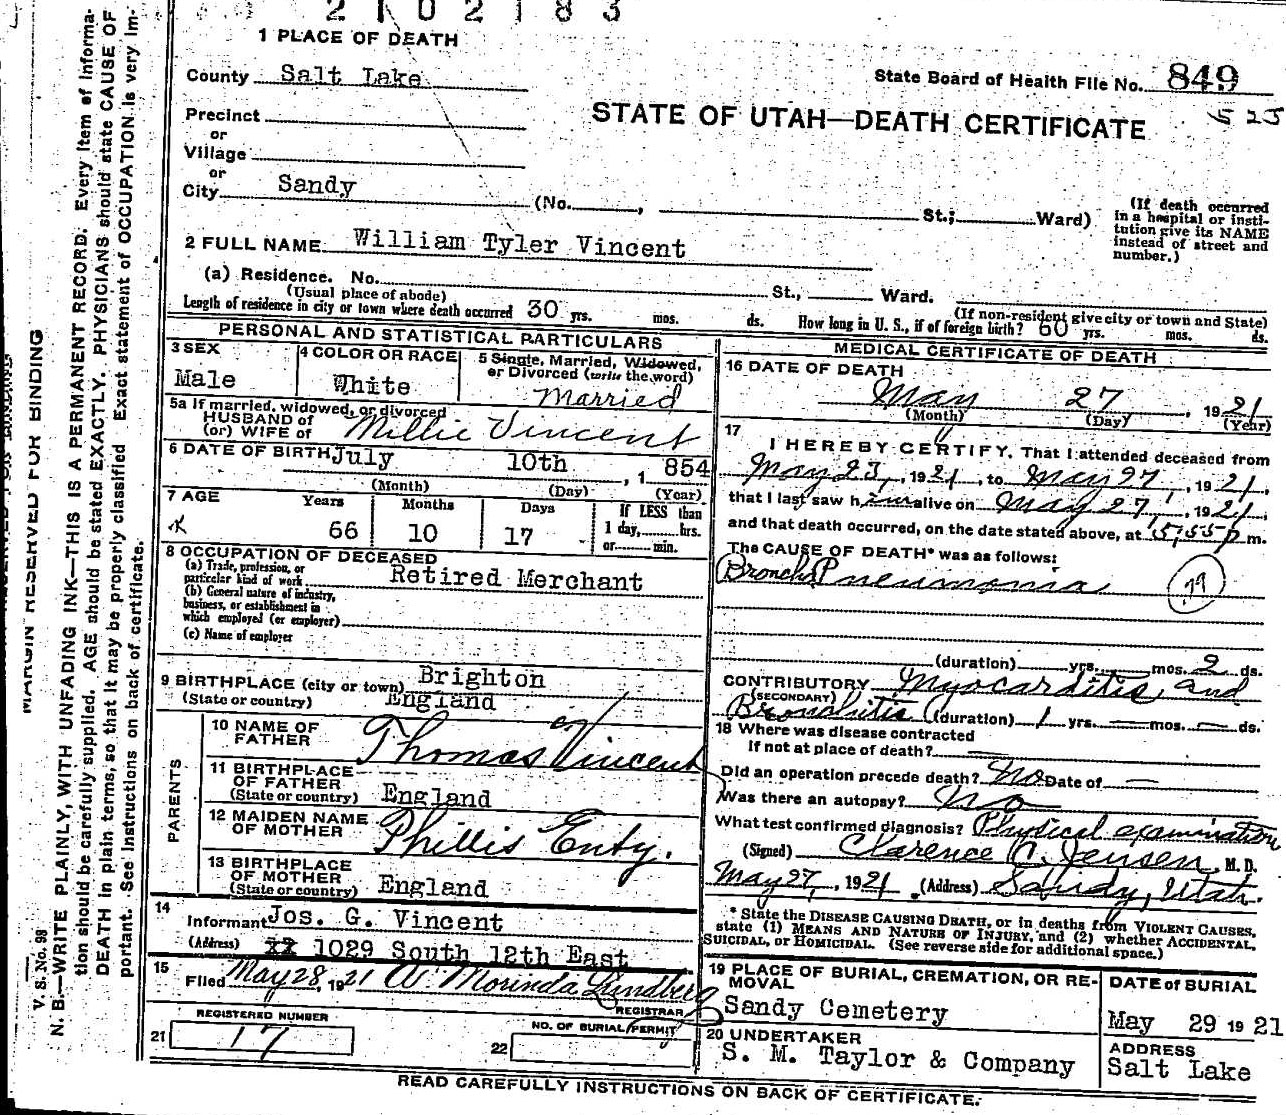 2102183
1 PLACE OF DEATH
County Salt Lake
State Board of Health File No. 849
525
Precinct
STATE OF UTAH—DEATH CERTIFICATE
or
Village
or
City Sandy (No. , St.; Ward)
(If death occurred in a hospital or institution give its NAME instead of street and number.)
2 FULL NAME William Tyler Vincent
(a) Residence. No. St., Ward.
(Usual place of abode) (If non-resident give city or town and State)
Length of residence in city or town where death occurred 30 yrs. mos. ds. How long in U. S., if of foreign birth? 60 yrs. mos. ds.
PERSONAL AND STATISTICAL PARTICULARS
3 SEX
Male
4 COLOR OR RACE
White
5 Single, Married, Widowed,
or Divorced (write the word)
Married
5a If married, widowed, or divorced
HUSBAND of
(or) WIFE of Millie Vincent
6 DATE OF BIRTH July 10th , 1 854
(Month) (Day) (Year)
7 AGE Years Months Days If LESS than
1 day, hrs.
or min.
66 10 17
8 OCCUPATION OF DECEASED
(a) Trade, profession, or
particular kind of work Retired Merchant
(b) General nature of industry,
business, or establishment in
which employed (or employer)
(c) Name of employer
9 BIRTHPLACE (city or town) Brighton
(State or country) England
PARENTS
10 NAME OF
FATHER Thomas Vincent
11 BIRTHPLACE
OF FATHER
(State or country) England
12 MAIDEN NAME
OF MOTHER Phillis Enty.
13 BIRTHPLACE
OF MOTHER
(State or country) England
14
Informant Jos. G. Vincent
(Address) 1029 South 12th East
15
Filed May 28, 1921 W. Morinda Lundberg
REGISTRAR
REGISTERED NUMBER
21 17
NO. OF BURIAL PERMIT
22
MEDICAL CERTIFICATE OF DEATH
16 DATE OF DEATH
May 27 , 1921
(Month) (Day) (Year)
17
I HEREBY CERTIFY, That I attended deceased from
May 23, 1921, to May 27, 1921,
that I last saw him alive on May 27, 1921,
and that death occurred, on the date stated above, at 5,55 p m.
The CAUSE OF DEATH* was as follows:
Broncho Pneumonia
(duration) yrs. mos. 2 ds.
CONTRIBUTORY Myocarditis, and
(SECONDARY)
Bronchitis (duration) 1 yrs. — mos. — ds.
18 Where was disease contracted
If not at place of death? —
Did an operation precede death? No Date of —
Was there an autopsy? No
What test confirmed diagnosis? Physical examination
(Signed) Clarence C. Jensen, M. D.
May 27, 1921 (Address) Sandy, Utah.
* State the DISEASE CAUSING DEATH, or in deaths from VIOLENT CAUSES,
state (1) MEANS AND NATURE OF INJURY, and (2) whether ACCIDENTAL,
SUICIDAL, or HOMICIDAL. (See reverse side for additional space.)
19 PLACE OF BURIAL, CREMATION, OR RE-
MOVAL
Sandy Cemetery
DATE of BURIAL
May 29 1921
20 UNDERTAKER
S. M. Taylor & Company
ADDRESS
Salt Lake
READ CAREFULLY INSTRUCTIONS ON BACK OF CERTIFICATE.
MARGIN RESERVED FOR BINDING
V. S. No. 98
N. B.—WRITE PLAINLY, WITH UNFADING INK—THIS IS A PERMANENT RECORD. Every item of informa-
tion should be carefully supplied. AGE should be stated EXACTLY. PHYSICIANS should state CAUSE OF
DEATH in plain terms, so that it may be properly classified. Exact statement of OCCUPATION is very im-
portant. See instructions on back of certificate.